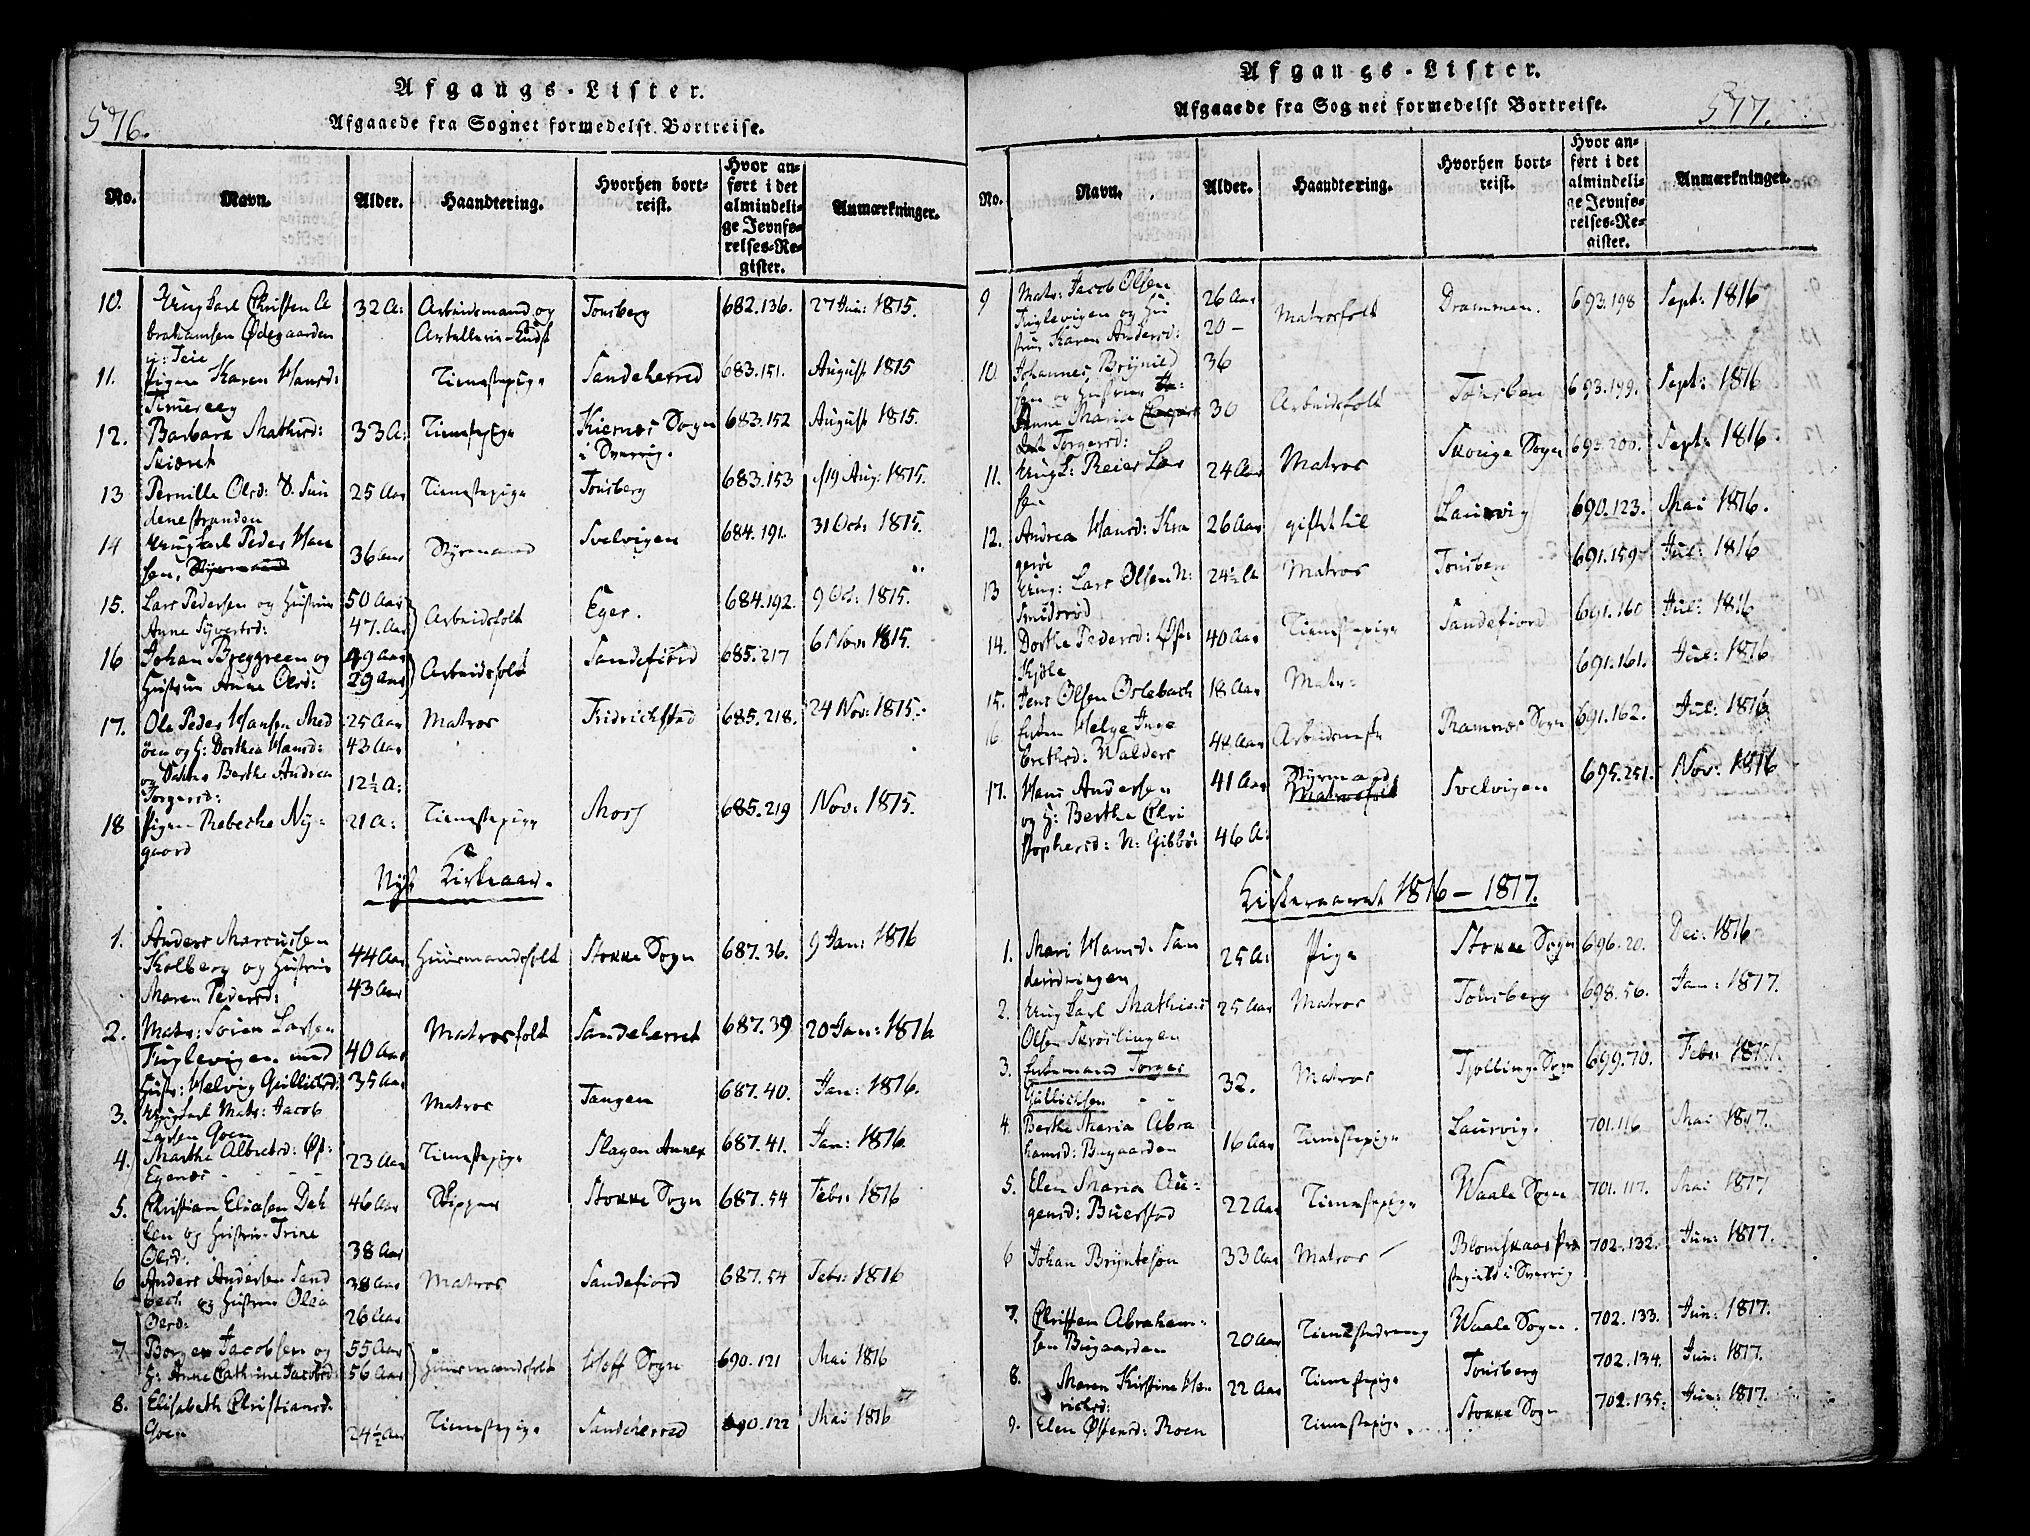 576.
Afgangs-Lister.
Afgaaede fra Sognet formedelst Bortreise.
No. Navn. Alder. Haandtering. Hvorhen bortreist. Hvor anført i det almindelige Jevnførelses-Register. Anmærkninger.
10. Ungkarl Christen A 32 A: Arbeidsmand og Tonsberg 682.136. 27 Jun: 1815.
brahamsen Ødegaarden Artellerie-Kudsk
v: Teie
11. Pigen Karen Hansd: Tienestepige Sandeherred 683.151. August 1815
12. Barbara Mathisd: 33 A: Tienestepige Kiernes Sogn 683.152 August 1815.
Skiæret i Sverrig.
13 Pernille Olsd: 25 Aar Tienestepige Tonsberg 683.153 19 Aug: 1815.
denestranden
14 Ungkarl Peder Han 36 Aar Styrmand Svelvigen 684.191. 31 Oct: 1815.
sen, Styrmand
15. Lars Pedersen og Hustrue 50 Aar Arbeidsfolk Eger. 684.192. 9 Oct: 1815.
Anne Syvertsd: 47 Aar
16 Johan Breggreen og 49 Aar Arbeidsfolk Sandefiord 685.217 6 Nov: 1815.
Hustrue Anne Olsd: 29 Aar
17. Ole Peder Hansen Med 25 Aar Matros Fridrichstad 685.218. 24 Nov: 1815.
øen og H: Dorthea Hansd: 43 Aar
og Datter Berthe Andrea 12½ A:
Torgersd:
18 Pigen Rebecke Ny- 21 A: Tienestepige Moss 685.219 Nov: 1815.
gaard
Nyt Kirkeaar.
1. Anders Marcussen 44 Aar Huusmandsfolk Stokke Sogn 687.36. 9 Jan: 1816
Kolberg og Hustrue
Maren Pedersd: 43 Aar
2. Matr: Søren Larsen Matrosfolk Sandeherret 687.39 20 Jan: 1816
Fuglevigen med 40 Aar
Hustr: Helvig Gullichsd: 35 Aar
3. Ungkarl Matr: Jacob Matros Tangen 687.40. Jan: 1816.
Larsen Goen
4. Marthe Albretsd: Øst: 23 Aar Tienestepige Slagen Annex 687.41. Jan: 1816.
Egenæs
5. Christian Eliasen Dah 46 Aar Skipper Stokke Sogn 687.54 Febr: 1816
len og Hustrue Trine
Olsd: 38 Aar
6 Anders Andersen Sand 38 Aar Matros Sandefiord 687.54 Febr: 1816
bech og Hustrue Olea
Olsd: 26 Aar
7 Borger Jacobsen og 55 Aar Huusmandsfolk Hoff Sogn 690.121 Mai 1816
H: Anne Cathrine Jacobsd: 56 Aar
8. Elisabeth Christiansd: Tienestepige Sandeherred 690.122 Mai 1816
Goen 24½ Aar
577.
Afgangs-Lister.
Afgaaede fra Sognet formedelst Bortreise.
No. Navn. Alder. Haandtering. Hvorhen bortreist. Hvor anført i det almindelige Jevnførelses-Register. Anmærkninger.
9 Matr: Jacob Olsen 26 Aar Matrosfolk Drammen. 693.198 Sept: 1816
Fuglevigen og Hu 20 -
strue Karen Andersd:
10. Johannes Bryneld 36 Arbeidsfolk Tonsberg 693.199. Sept: 1816
sen og Hustrue
Anne Maria 30
Torgersd:
11. Ungk: Reier Lar 24 Aar Matros Skouge Sogn 693.200. Sept: 1816.
sen
12. Andrea Hansd: Kra 26 Aar giftet til Laurvig 690.123. Mai 1816.
gerøe
13 Ungk: Lars Olsen N: 24½ A Matros Tonsberg 691.159 Jul: 1816
Smidsrød
14. Dorthe Pedersd: Øst: 40 Aar Tienestepige Sandefiord 691.160 Jul: 1816
Kjøle
15. Jens Olsen Oslebach 18 Aar Matr: 691.161. Jul: 1816
16 Enken Helge Inge 44 Aar Arbeidsenke Ramnes Sogn 691.162. Jul: 1816
brethsd: Walders
17. Hans Andersen 41 Aar Styrmand Svelvigen 695.251. Nov: 1816
Matrosfolk
og H: Berthe Chri
stophersd: N: Gibbøe 46 A:
Kirkeaaret 1816 - 1817.
1. Mari Hansd: San 25 A: Pige Stokke Sogn 696.20. Dec: 1816
2. Ungkarl Mathias 25 Aar Matros Tonsberg 698.56. Jan: 1817.
Olsen
3. Enkemand Torger 32. Matros Tjølling Sogn 699.70. Febr: 1817.
Gullichsen
4. Berthe Maria Abra 16 Aar Tienestepige Laurvig. 701.116 Mai 1817.
hamsd: Bugaarden
5. Elen Maria Au- 22 Aar Tienestepige Waale Sogn 701.117. Mai 1817
gensd: Buerstad
6 Johan Bryntesøn 33 Aar Matros Blomskaas Præ 702.132. Jun: 1817.
stegield i Sverrig
7. Christen Abraham- 20 Aar Tienestedreng Waale Sogn. 702.133. Jun: 1817.
sen Bugaarden
8. Maren Kirstine He- 22 Aar Tienestepige Tonsberg 702.134. Jun: 1817.
richsd:
9. Elen Østensd: Roen Tienestepige Stokke Sogn 702.135. Jun: 1817.